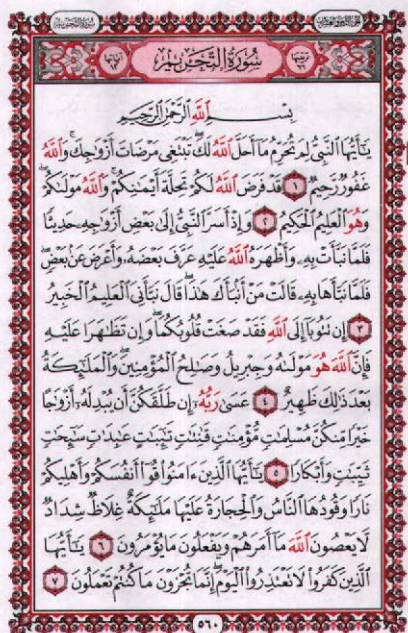 سُورَةُ التَّحْرِيمِ
بِسْمِ اللَّهِ الرَّحْمَٰنِ الرَّحِيمِ
يَٰٓأَيُّهَا ٱلنَّبِيُّ لِمَ تُحَرِّمُ مَآ أَحَلَّ ٱللَّهُ لَكَۖ تَبْتَغِى مَرْضَاتَ أَزْوَٰجِكَۚ وَٱللَّهُ
غَفُورٌ رَّحِيمٌ ١ قَدْ فَرَضَ ٱللَّهُ لَكُمْ تَحِلَّةَ أَيْمَٰنِكُمْۚ وَٱللَّهُ مَوْلَىٰكُمْۖ
وَهُوَ ٱلْعَلِيمُ ٱلْحَكِيمُ ٢ وَإِذْ أَسَرَّ ٱلنَّبِيُّ إِلَىٰ بَعْضِ أَزْوَٰجِهِۦ حَدِيثًا
فَلَمَّا نَبَّأَتْ بِهِۦ وَأَظْهَرَهُ ٱللَّهُ عَلَيْهِ عَرَّفَ بَعْضَهُۥ وَأَعْرَضَ عَنۢ بَعْضٍۖ
فَلَمَّا نَبَّأَهَا بِهِۦ قَالَتْ مَنْ أَنۢبَأَكَ هَٰذَاۖ قَالَ نَبَّأَنِىَ ٱلْعَلِيمُ ٱلْخَبِيرُ
٣ إِن تَتُوبَآ إِلَى ٱللَّهِ فَقَدْ صَغَتْ قُلُوبُكُمَاۖ وَإِن تَظَٰهَرَا عَلَيْهِ
فَإِنَّ ٱللَّهَ هُوَ مَوْلَىٰهُ وَجِبْرِيلُ وَصَٰلِحُ ٱلْمُؤْمِنِينَۖ وَٱلْمَلَٰٓئِكَةُ
بَعْدَ ذَٰلِكَ ظَهِيرٌ ٤ عَسَىٰ رَبُّهُۥٓ إِن طَلَّقَكُنَّ أَن يُبْدِلَهُۥٓ أَزْوَٰجًا
خَيْرًا مِّنكُنَّ مُسْلِمَٰتٍ مُّؤْمِنَٰتٍ قَٰنِتَٰتٍ تَٰٓئِبَٰتٍ عَٰبِدَٰتٍ سَٰٓئِحَٰتٍ
ثَيِّبَٰتٍ وَأَبْكَارًا ٥ يَٰٓأَيُّهَا ٱلَّذِينَ ءَامَنُوا۟ قُوٓا۟ أَنفُسَكُمْ وَأَهْلِيكُمْ
نَارًا وَقُودُهَا ٱلنَّاسُ وَٱلْحِجَارَةُ عَلَيْهَا مَلَٰٓئِكَةٌ غِلَاظٌ شِدَادٌ
لَّا يَعْصُونَ ٱللَّهَ مَآ أَمَرَهُمْ وَيَفْعَلُونَ مَا يُؤْمَرُونَ ٦ يَٰٓأَيُّهَا
ٱلَّذِينَ كَفَرُوا۟ لَا تَعْتَذِرُوا۟ ٱلْيَوْمَۖ إِنَّمَا تُجْزَوْنَ مَا كُنتُمْ تَعْمَلُونَ ٧
٥٦٠